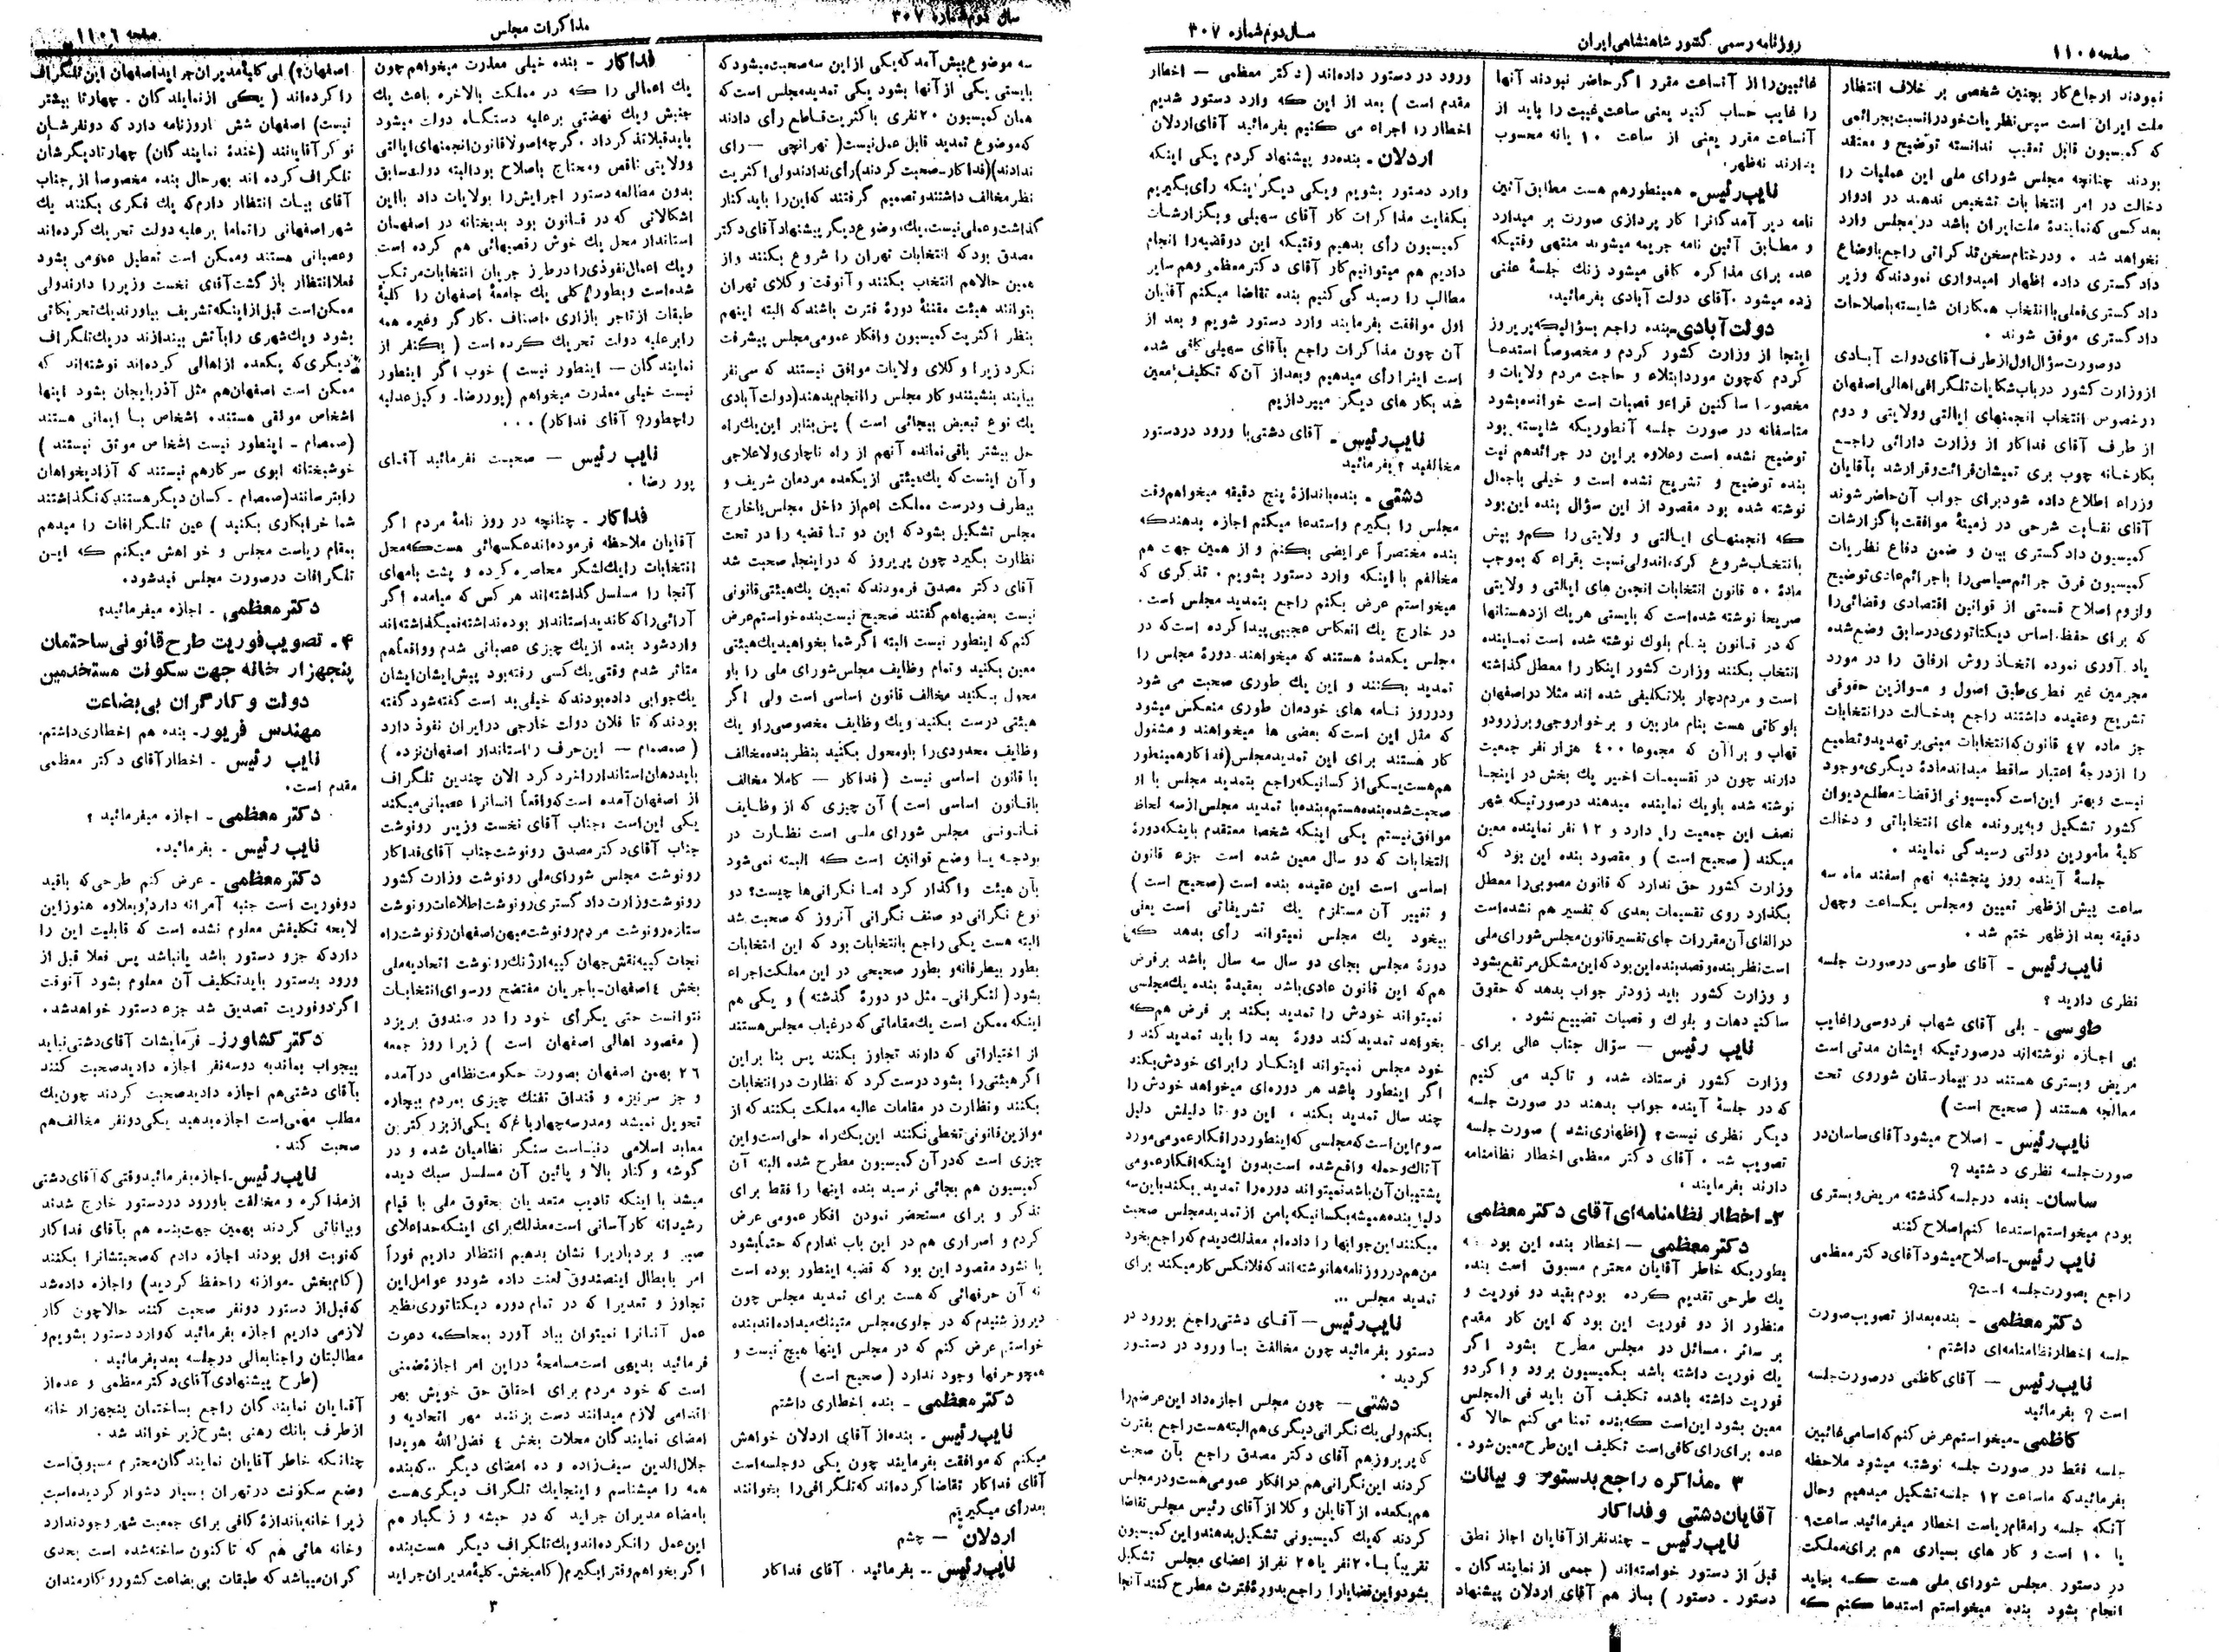 صفحه ۱۱۰۵
روزنامه رسمی کشور شاهنشاهی ایران
سال دوم شماره ۳۰۷
نبودند ارجاع کار بچنین شخصی بر خلاف انتظار
ملت ایران است سپس نظریات خود را نسبت بجرائمی
که کمیسیون قابل تعقیب ندانسته توضیح و معتقد
بودند چنانچه مجلس شورای ملی این عملیات را
دخالت در امر انتخابات تشخیص ندهند در ادوار
بعد کسی که نمایندهٔ ملت ایران باشد در مجلس وارد
نخواهد شد . و در ختام سخن تذکراتی راجع باوضاع
دادگستری داده اظهار امیدواری نمودند که وزیر
دادگستری فعلی با انتخاب همکاران شایسته باصلاحات
دادگستری موفق شوند .
دو صورت سؤال اول از طرف آقای دولت آبادی
از وزارت کشور در باب شکایات تلگرافی اهالی اصفهان
در خصوص انتخاب انجمنهای ایالتی و ولایتی و دوم
از طرف آقای فداکار از وزارت دارائی راجع
بکارخانه چوب بری تمیشان قرائت و قرار شد بآقایان
وزراء اطلاع داده شود برای جواب آن حاضر شوند
آقای نقابت شرحی در زمینهٔ موافقت با گزارشات
کمیسیون دادگستری بیان و ضمن دفاع نظریات
کمیسیون فرق جرائم سیاسی را با جرائم عادی توضیح
ولزوم اصلاح قسمتی از قوانین اقتصادی و قضائی را
که برای حفظ اساس دیکتاتوری در سابق وضع شده
یاد آوری نموده اتخاذ روش ارفاق را در مورد
مجرمین غیر فطری طبق اصول و موازین حقوقی
تشریح و عقیده داشتند راجع بدخالت در انتخابات
جز ماده ۴۷ قانون که انتخابات مبنی بر تهدید و تطمیع
را از درجهٔ اعتبار ساقط میداند مادهٔ دیگری موجود
نیست و بهتر این است کمیسیونی از قضات مطلع دیوان
کشور تشکیل و بپرونده های انتخاباتی و دخالت
کلیهٔ مأمورین دولتی رسیدگی نمایند .
جلسهٔ آینده روز پنجشنبه نهم اسفند ماه سه
ساعت پیش از ظهر تعیین و مجلس یکساعت و چهل
دقیقه بعد از ظهر ختم شد .
نایب رئیس - آقای طوسی در صورت جلسه
نظری دارید ؟
طوسی - بلی آقای شهاب فردوسی را غایب
بی اجازه نوشته اند در صورتیکه ایشان مدتی است
مریض و بستری هستند در بیمارستان شوروی تحت
معالجه هستند ( صحیح است )
نایب رئیس - اصلاح میشود آقای ساسان در
صورت جلسه نظری داشتید ?
ساسان - بنده در جلسه گذشته مریض و بستری
بودم میخواستم استدعا کنم اصلاح کنند
نایب رئیس - اصلاح میشود آقای دکتر معظمی
راجع بصورت جلسه است؟
دکتر معظمی - بنده بعد از تصویب صورت
جلسه اخطار نظامنامه ای داشتم .
نایب رئیس - آقای کاظمی در صورت جلسه
است ? بفرمائید
کاظمی - میخواستم عرض کنم که اسامی غائبین
جلسه فقط در صورت جلسه نوشته میشود ملاحظه
بفرمائید که ما ساعت ۱۲ جلسه تشکیل میدهیم و حال
آنکه جلسه را مقام ریاست اخطار میفرمائید ساعت ۹
یا ۱۰ است و کار های بسیاری هم برای مملکت
در دستور مجلس شورای ملی هست که بباید
انجام بشود بنده میخواستم استدعا کنم که
غائبین را از آنساعت مقرر اگر حاضر نبودند آنها
را غایب حساب کنید یعنی ساعت غیبت را باید از
آنساعت مقرر یعنی از ساعت ۱۰ یا نه محسوب
بدارند نه ظهر.
نایب رئیس - همینطور هم هست مطابق آئین
نامه دیر آمدگانرا کار پردازی صورت بر میدارد
و مطابق آئین نامه جریمه میشوند منتهی وقتیکه
عده برای مذاکره کافی میشود زنگ جلسهٔ علنی
زده میشود . آقای دولت آبادی بفرمائید.
دولت آبادی - بنده راجع بسؤالیکه پریروز
اینجا از وزارت کشور کردم و مخصوصاً استدعا
کردم که چون مورد ابتلاء و حاجت مردم ولایات و
مخصوصا ساکنین قراء و قصبات است خوانده بشود
متأسفانه در صورت جلسه آنطوریکه شایسته بود
توضیح نشده است و علاوه بر این در جرائد هم نیت
بنده توضیح و تشریح نشده است و خیلی باجمال
نوشته شده بود مقصود از این سؤال بنده این بود
که انجمنهای ایالتی و ولایتی را کم و بیش
بانتخاب شروع کرده اند ولی نسبت بقراء که بموجب
مادهٔ ۵۰ قانون انتخابات انجمن های ایالتی و ولایتی
صریحا نوشته شده است که بایستی هر یک از دهستانها
که در قانون بنام بلوک نوشته شده است نماینده
انتخاب بکنند وزارت کشور اینکار را معطل گذاشته
است و مردم دچار بلاتکلیفی شده اند مثلا در اصفهان
بلوکاتی هست بنام ماربین و برخوار و جی و برزرود و
قهاب و براآن که مجموعا ۴۰۰ هزار نفر جمعیت
دارند چون در تقسیمات اخیر یک بخش در اینجا
نوشته شده باو یک نماینده میدهند در صورتیکه شهر
نصف این جمعیت را دارد و ۱۲ نفر نماینده معین
میکند ( صحیح است ) و مقصود بنده این بود که
وزارت کشور حق ندارد که قانون مصوبی را معطل
بگذارد روی تقسیمات بعدی که تفسیر هم نشده است
در الغای آن مقررات جای تفسیر قانون مجلس شورای ملی
است نظر بنده و قصد بنده این بود که این مشکل مرتفع بشود
و وزارت کشور باید زودتر جواب بدهد که حقوق
ساکنین دهات و بلوک و قصبات تضییع نشود .
نایب رئیس - سؤال جناب عالی برای
وزارت کشور فرستاده شده و تاکید می کنیم
که در جلسهٔ آینده جواب بدهند در صورت جلسه
دیگر نظری نیست؟ (اظهاری نشد ) صورت جلسه
تصویب شد . آقای دکتر معظمی اخطار نظامنامه
دارند بفرمایند .
۲- اخطار نظامنامه ای آقای دکتر معظمی
دکتر معظمی - اخطار بنده این بود که
بطوریکه خاطر آقایان محترم مسبوق است بنده
یک طرحی تقدیم کرده بودم بقید دو فوریت و
منظور از دو فوریت این بود که این کار مقدم
بر سائر مسائل در مجلس مطرح بشود اگر
یک فوریت داشته باشد بکمیسیون برود و اگر دو
فوریت داشته باشد تکلیف آن باید فی المجلس
معین بشود این است که بنده تمنا می کنم حالا که
عده برای رای کافی است تکلیف این طرح معین شود .
۳ - مذاکره راجع بدستور و بیانات
آقایان دشتی و فداکار
نایب رئیس - چند نفر از آقایان اجازه نطق
قبل از دستور خواسته اند ( جمعی از نمایندگان -
دستور - دستور ) باز هم آقای اردلان پیشنهاد
ورود در دستور داده اند (دکتر معظمی - اخطار
مقدم است ) بعد از این که وارد دستور شدیم
اخطار را اجراء می کنیم بفرمائید آقای اردلان
اردلان - بنده دو پیشنهاد کردم یکی اینکه
وارد دستور بشویم و یکی دیگر اینکه رأی بگیریم
بکفایت مذاکرات کار آقای سهیلی و بگزارشات
کمیسیون رأی بدهیم وقتیکه این دو قضیه را انجام
دادیم هم میتوانیم کار آقای دکتر معظمی و هم سایر
مطالب را رسیدگی کنیم بنده تقاضا میکنم آقایان
اول موافقت بفرمایند وارد دستور شویم و بعد از
آن چون مذاکرات راجع بآقای سهیلی کافی شده
است اینرا رأی میدهیم و بعد از آن که تکلیف معین
شد بکار های دیگر میپردازیم
نایب رئیس - آقای دشتی با ورود در دستور
مخالفید ؟ بفرمائید
دشتی - بنده باندازهٔ پنج دقیقه میخواهم وقت
مجلس را بگیرم و استدعا میکنم اجازه بدهند که
بنده مختصراً عرایضی بکنم و از همین جهت هم
مخالفم با اینکه وارد دستور بشویم . تذکری که
میخواستم عرض بکنم راجع بتمدید مجلس است .
در خارج یک انعکاس عجیبی پیدا کرده است که در
مجلس یکعدهٔ هستند که میخواهند دورهٔ مجلس را
تمدید بکنند و این یک طوری صحبت می شود
و در روز نامه های خودمان طوری منعکس میشود
که مثل این است که بعضی ها میخواهند و مشغول
کار هستند برای این تمدید مجلس (فداکار همینطور
هم هست) یکی از کسانیکه راجع بتمدید مجلس با او
صحبت شده بنده هستم و بنده با تمدید مجلس از سه لحاظ
موافق نیستم یکی اینکه شخصا معتقدم باینکه دورهٔ
انتخابات که دو سال معین شده است جزء قانون
اساسی است این عقیده بنده است (صحیح است )
و تغییر آن مستلزم یک تشریفاتی است یعنی
بیخود یک مجلس نمیتواند رأی بدهد که
دورهٔ مجلس بجای دو سال سه سال باشد بر فرض
هم که این قانون عادی باشد بعقیدهٔ بنده یک مجلسی
نمیتواند خودش را تمدید بکند بر فرض هم که
بخواهد تمدید کند دورهٔ بعد را باید تمدید کند و
خود مجلس نمیتواند اینکار را برای خودش بکند
اگر اینطور باشد هر دوره ای میخواهد خودش را
چند سال تمدید بکند . این دو تا دلیلش دلیل
سوم این است که مجلسی که اینطور در افکار عمومی مورد
آتاک و حمله واقع شده است بدون اینکه افکار عمومی
پشتیبان آن باشد نمیتواند دوره را تمدید بکند باین سه
دلیل بنده همیشه بکسانیکه با من از تمدید مجلس صحبت
میکنند این جوابها را داده ام معذلک دیدم که راجع بخود
من هم در روزنامه ها نوشته اند که فلانکس کار میکند برای
تمدید مجلس ...
نایب رئیس - آقای دشتی راجع بورود در
دستور بفرمائید چون مخالفت با ورود در دستور
کردید .
دشتی - چون مجلس اجازه داد این عرضم را
بکنم ولی یک نگرانی دیگری هم البته هست راجع بفترت
که پریروز هم آقای دکتر مصدق راجع بآن صحبت
کردند این نگرانی هم در افکار عمومی هست و در مجلس
هم یکعده از آقایان وکلا از آقای رئیس مجلس تقاضا
کردند که یک کمیسیونی تشکیل بدهند و این کمیسیون
تقریباً با ۲۰ نفر یا ۲۵ نفر از اعضای مجلس تشکیل
بشود و این قضایا را راجع بدورهٔ فترت مطرح کنند آنجا
سال دوم شماره ۳۰۷
مذاکرات مجلس
صفحه ۱۱۰۶
سه موضوع پیش آمد که یکی از این سه صحبت میشود که
بایستی یکی از آنها بشود یکی تمدید مجلس است که
همان کمیسیون ۲۰ نفری با کثریت قاطع رأی دادند
که موضوع تمدید قابل عمل نیست ( تهرانچی - رای
ندادند)(فداکار - صحبت کردند) رأی ندادند ولی اکثریت
نظر مخالف داشتند و تصمیم گرفتند که این را باید کنار
گذاشت و عملی نیست . یک موضوع دیگر پیشنهاد آقای دکتر
مصدق بود که انتخابات تهران را شروع بکنند و از
همین حالا هم انتخاب بکنند و آنوقت وکلای تهران
بتوانند هیئت مقننهٔ دورهٔ فترت باشند که البته اینهم
بنظر اکثریت کمیسیون و افکار عمومی مجلس پیشرفت
نکرد زیرا وکلای ولایات موافق نیستند که سی نفر
بیایند بنشینند و کار مجلس را انجام بدهند (دولت آبادی
یک نوع تبعیض بیجائی است ) پس بنابر این یک راه
حل بیشتر باقی نمانده آنهم از راه ناچاری و لاعلاجی
و آن اینست که یک هیئتی از یکعده مردمان شریف و
بیطرف و درست مملکت اعم از داخل مجلس یا خارج
مجلس تشکیل بشود که این دو تا قضیه را در تحت
نظارت بگیرد چون پریروز که در اینجا صحبت شد
آقای دکتر مصدق فرمودند که تعیین یک هیئتی قانونی
نیست بعضیها هم گفتند صحیح نیست بنده خواستم عرض
کنم که اینطور نیست البته اگر شما بخواهید یک هیئتی
معین بکنید و تمام وظایف مجلس شورای ملی را باو
محول بکنید مخالف قانون اساسی است ولی اگر
هیئتی درست بکنید و یک وظایف مخصوصی را و یک
وظایف محدودی را باو محول بکنید بنظر بنده مخالف
با قانون اساسی نیست ( فداکار - کاملا مخالف
با قانون اساسی است ) آن چیزی که از وظایف
قانونی مجلس شورای ملی است نظارت در
بودجه یا وضع قوانین است که البته نمی شود
بآن هیئت واگذار کرد اما نگرانی ها چیست؟ دو
نوع نگرانی دو صنف نگرانی آنروز که صحبت شد
البته هست یکی راجع بانتخابات بود که این انتخابات
بطور بیطرفانه و بطور صحیحی در این مملکت اجراء
بشود ( لنکرانی - مثل دو دورهٔ گذشته ) و یکی هم
اینکه ممکن است یک مقاماتی که در غیاب مجلس هستند
از اختیاراتی که دارند تجاوز بکنند پس بنا براین
اگر هیئتی را بشود درست کرد که نظارت در انتخابات
بکنند و نظارت در مقامات عالیه مملکت بکنند که از
موازین قانونی تخطی نکنند این یک راه حلی است و این
چیزی است که در آن کمیسیون مطرح شده البته آن
کمیسیون هم بجائی نرسید بنده اینها را فقط برای
تذکر و برای مستحضر نمودن افکار عمومی عرض
کردم و اصراری هم در این باب ندارم که حتما بشود
یا نشود مقصود این بود که قضیه اینطور بوده است
نه آن حرفهائی که هست برای تمدید مجلس چون
دیروز شنیدم که در جلوی مجلس متینگ میداده اند بنده
خواستم عرض کنم که در مجلس اینها هیچ نیست و
همچو حرفها وجود ندارد ( صحیح است )
دکتر معظمی - بنده اخطاری داشتم
نایب رئیس - بنده از آقای اردلان خواهش
میکنم که موافقت بفرمایند چون یکی دو جلسه است
آقای فداکار تقاضا کرده اند که تلگرافی را بخوانند
بعد رأی میگیریم
اردلان - چشم
نایب رئیس - بفرمائید . آقای فداکار
فداکار - بنده خیلی معذرت میخواهم چون
یک اعمالی را که در مملکت بالاخره باعث یک
جنبش و یک نهضتی بر علیه دستگاه دولت میشود
باید قبلا تذکر داد . گرچه اصولا قانون انجمنهای ایالتی
و ولایتی ناقص و محتاج باصلاح بود البته دولت سابق
بدون مطالعه دستور اجرایش را بولایات داد با این
اشکالاتی که در قانون بود بدبختانه در اصفهان
استاندار محل یک خوش رقصیهائی هم کرده است
و یک اعمال نفوذی را در طرز جریان انتخابات مرتکب
شده است و بطور کلی یک جامعهٔ اصفهان را کلیهٔ
طبقات از تاجر بازاری ، اصناف . کارگر و غیره همه
را بر علیه دولت تحریک کرده است ( یکنفر از
نمایندگان - اینطور نیست ) خوب اگر اینطور
نیست خیلی معذرت میخواهم (پوررضا - وکیل عدلیه
را چطور؟ آقای فداکار) ...
نایب رئیس - صحبت نفرمائید آقای
پور رضا .
فداکار - چنانچه در روز نامهٔ مردم اگر
آقایان ملاحظه فرموده اند عکسهائی هست که محل
انتخابات را یک لشکر محاصره کرده و پشت بامهای
آنجا را مسلسل گذاشته اند هر کس که میامده اگر
آرائی را که کاندید استاندار بوده نداشته نمیگذاشته اند
وارد شود بنده از یک چیزی عصبانی شدم و واقعاً هم
متاثر شدم وقتی یک کسی رفته بود پیش ایشان ایشان
یک جوابی داده بودند که خیلی بد است گفته شود گفته
بودند که تا فلان دولت خارجی در ایران نفوذ دارد
( صمصام - این حرف را استاندار اصفهان نزده )
باید دهان استاندار را خرد کرد الان چندین تلگراف
از اصفهان آمده است که واقعاً انسانرا عصبانی میکند
یکی این است ، جناب آقای نخست وزیر رونوشت
جناب آقای دکتر مصدق رونوشت جناب آقای فداکار
رونوشت مجلس شورای ملی رونوشت وزارت کشور
رونوشت وزارت دادگستری رونوشت اطلاعات رونوشت
ستاره رونوشت مردم رونوشت میهن اصفهان رونوشت راه
نجات کپیه نقش جهان کپیه ارژنگ رونوشت اتحادیه ملی
بخش ۴ اصفهان - با جریان مفتضح و رسوای انتخابات
نتوانست حتی یکرأی خود را در صندوق بریزد
( مقصود اهالی اصفهان است ) زیرا روز جمعه
۲۶ بهمن اصفهان بصورت حکومت نظامی در آمده
و جز سرنیزه و قنداق تفنگ چیزی بمردم بیچاره
تحویل نمیشد و مدرسه چهارباغ که یکی از بزرکترین
معابد اسلامی دنیاست سنگر نظامیان شده و در
گوشه و کنار بالا و پائین آن مسلسل سبک دیده
میشد با اینکه تادیب متعدیان بحقوق ملی با قیام
رشیدانه کار آسانی است معذلک برای اینکه حد اعلای
صبر و بردباریرا نشان بدهیم انتظار داریم فوراً
امر بابطال اینصندوق لعنت داده شود و عوامل این
تجاوز و تعدیرا که در تمام دوره دیکتاتوری نظیر
عمل آنانرا نمیتوان بیاد آورد بمحاکمه دعوت
فرمائید بدیهی است مسامحهٔ در این امر اجازهٔ ضمنی
است که خود مردم برای احقاق حق خویش بهر
اقدامی لازم میدانند دست بزنند مهر اتحادیه و
امضای نمایندگان محلات بخش ۴ فضل الله هویدا
جلال الدین سیف زاده و ده امضای دیگر .. که بنده
همه را میشناسم و اینجا یک تلگراف دیگری هست
بامضاء مدیران جراید که در حبشه و زنگبار هم
این عمل را نکرده اند و یک تلگراف دیگر هست بنده
اگر بخواهم وقترا بگیرم ( کامبخش - کلیهٔ مدیران جراید
اصفهان؟) بلی کلیهٔ مدیران جراید اصفهان این تلگراف
را کرده اند ( یکی از نمایندگان - چهارتا بیشتر
نیست) اصفهان شش تا روزنامه دارد که دو نفرشان
نوکر آقایانند (خندهٔ نمایندگان) چهارتا دیگرشان
تلگراف کرده اند بهر حال بنده مخصوصا از جناب
آقای بیات انتظار دارم که یک فکری بکنند یک
شهر اصفهانی را تماما بر علیه دولت تحریک کرده اند
و عصبانی هستند و ممکن است تعطیل عمومی بشود
فعلا انتظار بازگشت آقای نخست وزیر را دارند ولی
ممکن است قبل از اینکه تشریف بیاورند یک تحریکاتی
بشود و یک شهری را بآتش بیندازند در یک تلگراف
دیگری که یکعده از اهالی کرده اند نوشته اند که
ممکن است اصفهان هم مثل آذربایجان بشود اینها
اشخاص موثقی هستند اشخاص با ایمانی هستند
(صمصام - اینطور نیست اشخاص موثق نیستند )
خوشبختانه ابوی سرکار هم نیستند که آزادیخواهان
را بترسانند (صمصام - کسان دیگر هستند که نگذاشتند
شما خرابکاری بکنید ) عین تلگرافات را میدهم
بمقام ریاست مجلس و خواهش میکنم که این
تلگرافات در صورت مجلس قید شود.
دکتر معظمی - اجازه میفرمائید؟
۴ - تصویب فوریت طرح قانونی ساختمان
پنجهزار خانه جهت سکونت مستخدمین
دولت و کارگران بی بضاعت
مهندس فریور - بنده هم اخطاری داشتم.
نایب رئیس - اخطار آقای دکتر معظمی
مقدم است.
دکتر معظمی - اجازه میفرمائید ؟
نایب رئیس - بفرمائید.
دکتر معظمی - عرض کنم طرحی که باقید
دو فوریت است جنبه آمرانه دارد و بعلاوه هنوز این
لایحه تکلیفش معلوم نشده است که قابلیت این را
دارد که جزو دستور باشد یا نباشد پس فعلا قبل از
ورود بدستور باید تکلیف آن معلوم بشود آنوقت
اگر دو فوریت تصدیق شد جزء دستور خواهد شد.
دکتر کشاورز - فرمایشات آقای دشتی نباید
بیجواب بماند به دو سه نفر اجازه دادید صحبت کنند
بآقای دشتی هم اجازه دادید صحبت کردند چون یک
مطلب مهمی است اجازه بدهید یکی دو نفر مخالف هم
صحبت کند .
نایب رئیس - اجازه بفرمائید وقتی که آقای دشتی
از مذاکره و مخالفت باورود در دستور خارج شدند
و بیاناتی کردند بهمین جهت بنده هم بآقای فداکار
که نوبت اول بودند اجازه دادم که صحبتشانرا بکنند
(کامبخش - موازنه را حفظ کردید) واجازه داده شد
که قبل از دستور دو نفر صحبت کنند حالا چون کار
لازمی داریم اجازه بفرمائید که وارد دستور بشویم و
مطالبتان را جنابعالی در جلسه بعد بفرمائید .
(طرح پیشنهادی آقای دکتر معظمی و عده از
آقایان نمایندگان راجع بساختمان پنجهزار خانه
از طرف بانک رهنی بشرح زیر خوانده شد .
چنانکه خاطر آقایان نمایندگان محترم مسبوق است
وضع سکونت در تهران بسیار دشوار گردیده است
زیرا خانه باندازهٔ کافی برای جمعیت شهر وجود ندارد
و خانه هائی هم که تا کنون ساخته شده است بحدی
گران میباشد که طبقات بی بضاعت کشور و کارمندان
۳